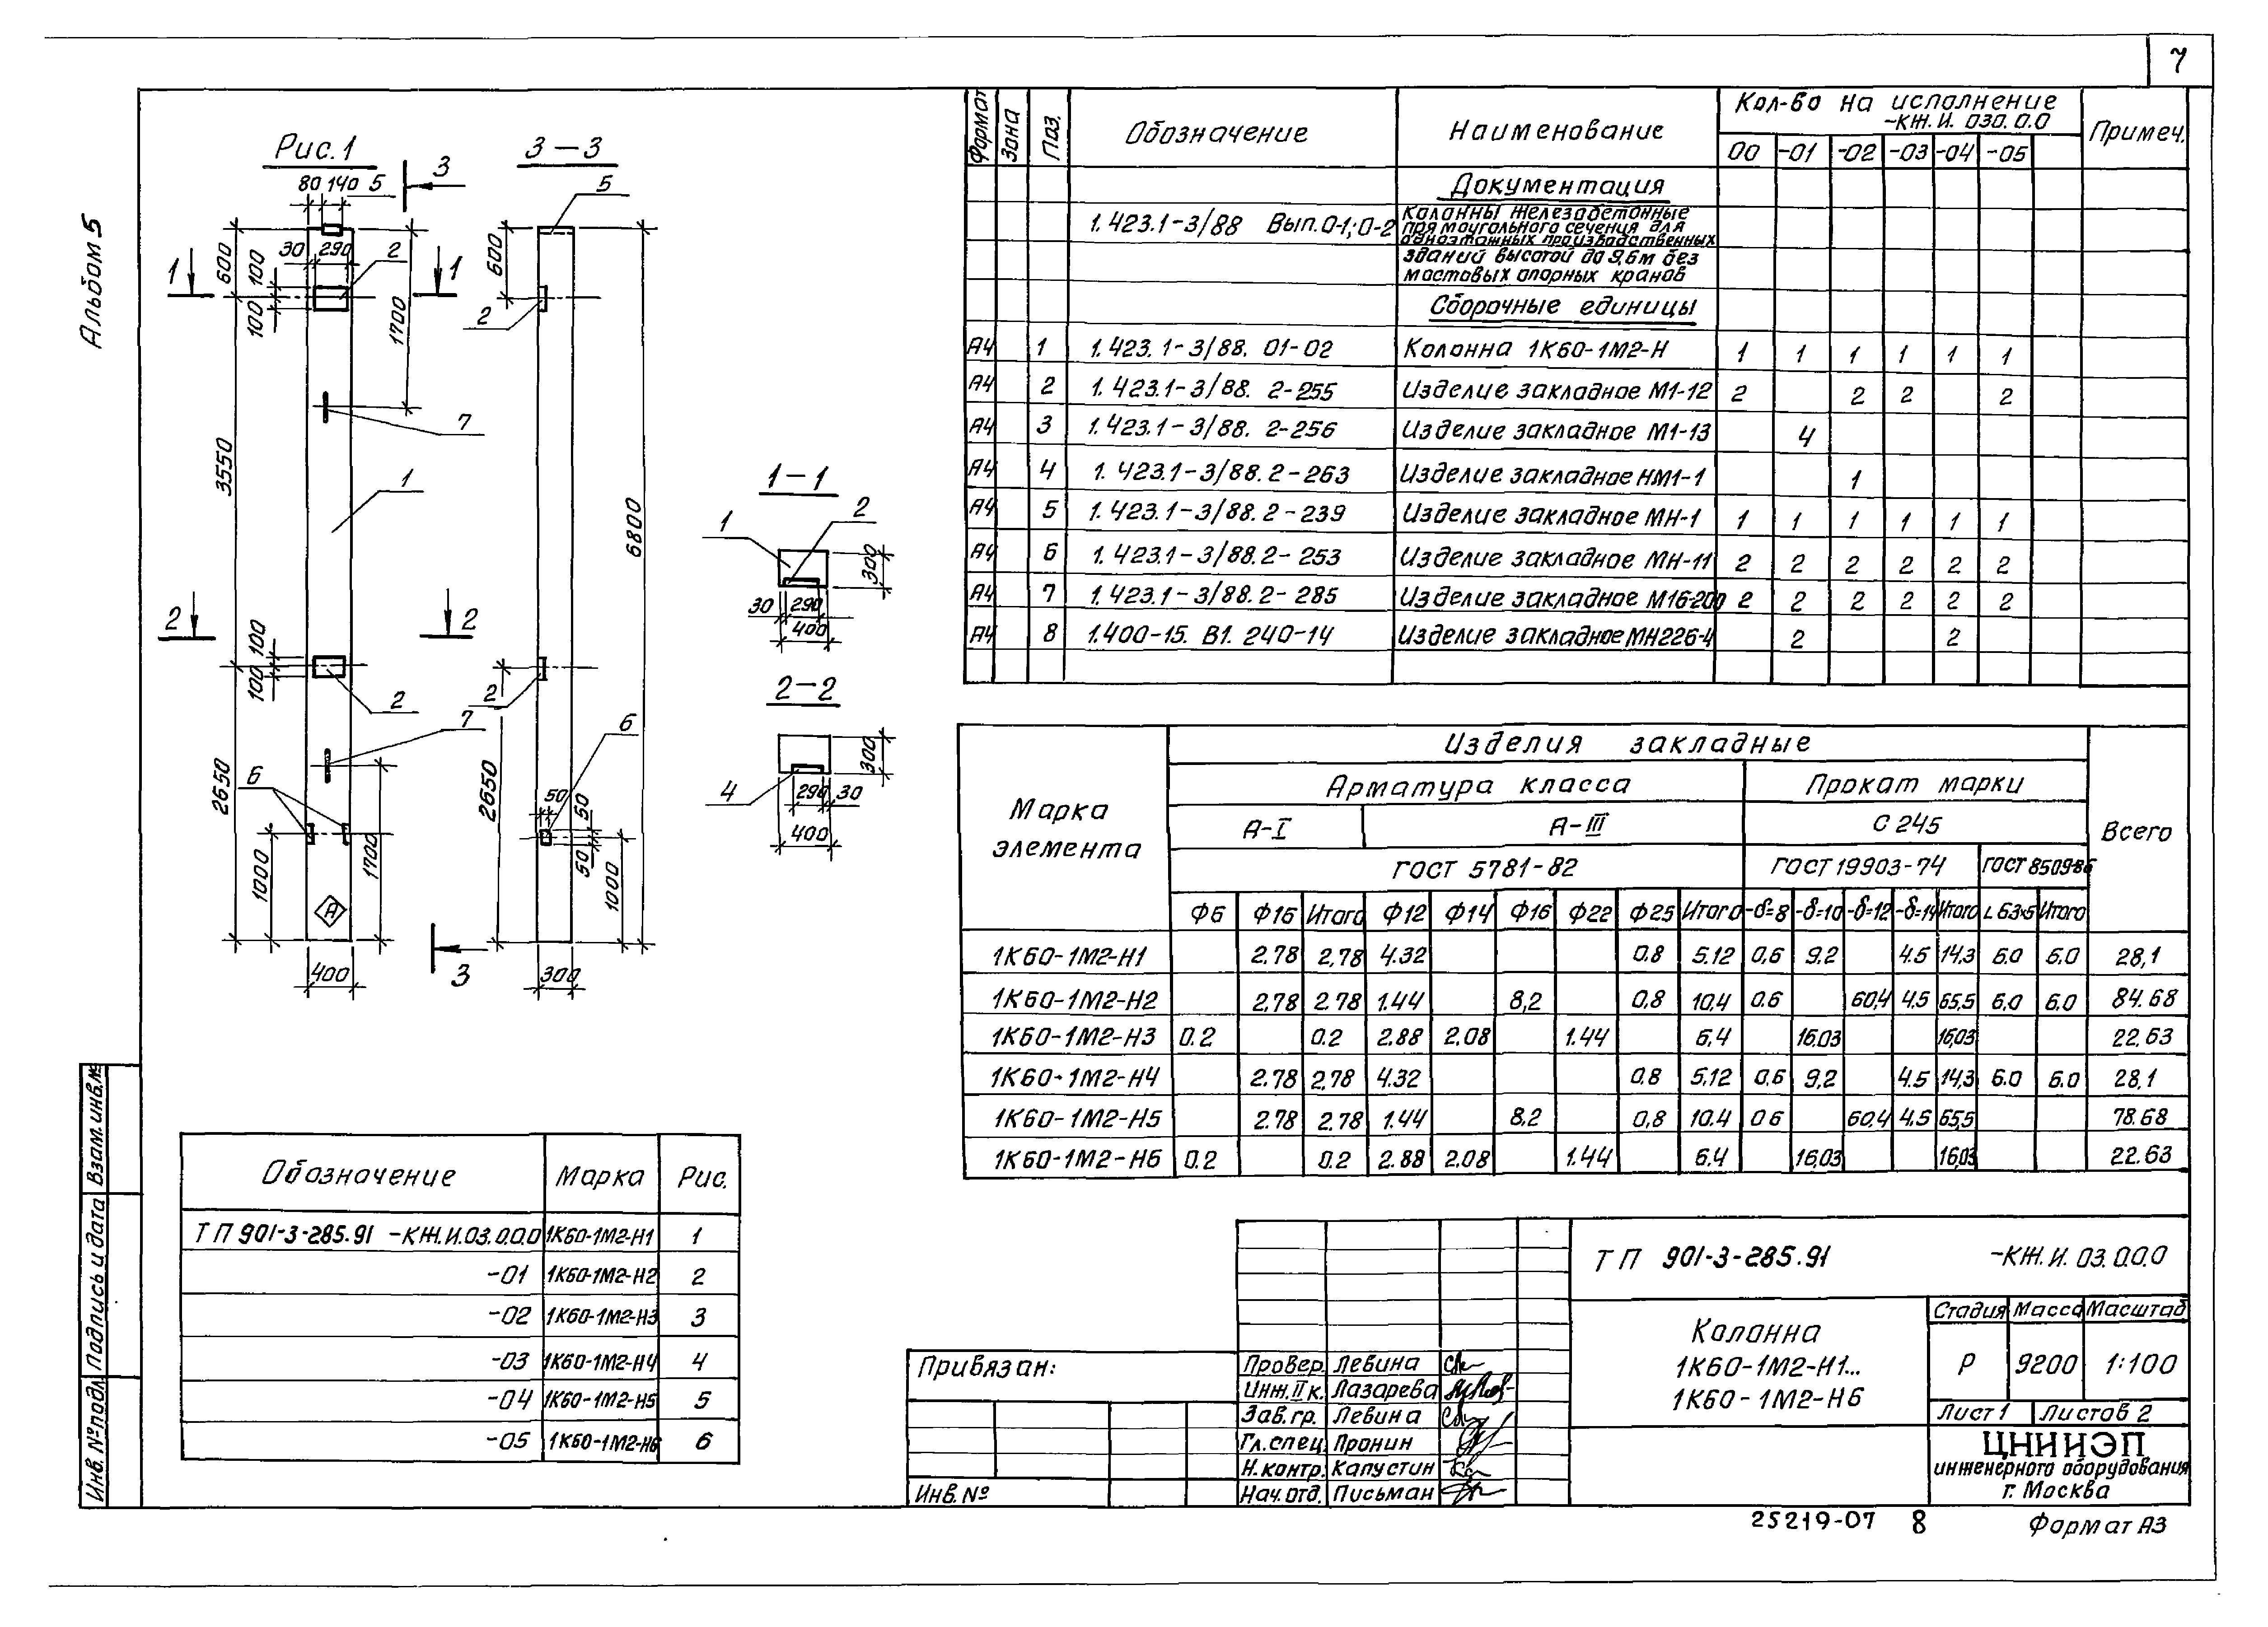 7
Альбом 5
Рис. 1
3
80 140 5
30 290 2
600
100
100
1 1
1700
3550
7
1
2 2
100
100
2
7
2650
6
1000
1700
А
400
3
3-3
5
600
2
6800
2
6
2650
50
50
50
1000
300
1-1
1 2
300
30 290
400
2-2
300
4 290 30
400
Формат Зона Поз. Обозначение Наименование Кол-во на исполнение -КЖ.И. 030.0.0 Примеч.
00 -01 -02 -03 -04 -05
Документация
1.423.1-3/88 Вып. 0-1; 0-2 Колонны железобетонные
прямоугольного сечения для
одноэтажных производственных
зданий высотой до 9,6м без
мостовых опорных кранов
Сборочные единицы
А4 1 1.423.1-3/88. 01-02 Колонна 1К60-1М2-Н 1 1 1 1 1 1
А4 2 1.423.1-3/88. 2-255 Изделие закладное М1-12 2 2 2 2
А4 3 1.423.1-3/88. 2-256 Изделие закладное М1-13 4
А4 4 1.423.1-3/88. 2-263 Изделие закладное НМ1-1 1
А4 5 1.423.1-3/88. 2-239 Изделие закладное МН-1 1 1 1 1 1 1
А4 6 1.423.1-3/88. 2-253 Изделие закладное МН-11 2 2 2 2 2 2
А4 7 1.423.1-3/88. 2-285 Изделие закладное М16-200 2 2 2 2 2 2
А4 8 1.400-15. В1. 240-14 Изделие закладное МН226-4 2 2
Марка элемента Изделия закладные Всего
Арматура класса Прокат марки
А-I А-III С 245
ГОСТ 5781-82 ГОСТ 19903-74 ГОСТ 8509-86
Ф6 Ф16 Итого Ф12 Ф14 Ф16 Ф22 Ф25 Итого -δ=8 -δ=10 -δ=12 -δ=14 Итого L 63×5 Итого
1К60-1М2-Н1 2.78 2,78 4.32 0.8 5.12 0,6 9.2 4.5 14,3 6.0 6.0 28,1
1К60-1М2-Н2 2,78 2.78 1.44 8,2 0.8 10,4 0.6 60,4 4,5 65,5 6,0 6,0 84.68
1К60-1М2-Н3 0.2 0.2 2.88 2,08 1.44 6,4 16.03 16,03 22,63
1К60-1М2-Н4 2.78 2,78 4.32 0.8 5,12 0,6 9.2 4.5 14,3 6.0 6.0 28,1
1К60-1М2-Н5 2.78 2,78 1.44 8,2 0,8 10.4 0 6 60.4 4,5 65,5 78.68
1К60-1М2-Н6 0.2 0.2 2.88 2.08 1.44 6.4 16,03 16,03 22.63
Обозначение Марка Рис.
ТП 901-3-285.91 -КЖ.И.03.0.0.0 1К60-1М2-Н1 1
-01 1К60-1М2-Н2 2
-02 1К60-1М2-Н3 3
-03 1К60-1М2-Н4 4
-04 1К60-1М2-Н5 5
-05 1К60-1М2-Н6 6
Взам. инв. №
Подпись и дата
Инв. № подл.
Привязан:
Инв. №
Провер. Левина
Инж. II к. Лазарева
Зав. гр. Левина
Гл. спец. Пронин
Н. контр. Капустин
Нач. отд. Письман
ТП 901-3-285.91 -КЖ.И. 03.0.0.0
Колонна
1К60-1М2-Н1...
1К60-1М2-Н6
Стадия Масса Масштаб
Р 9200 1:100
Лист 1 Листов 2
ЦНИИЭП
инженерного оборудования
г. Москва
25219-07 8 Формат А3